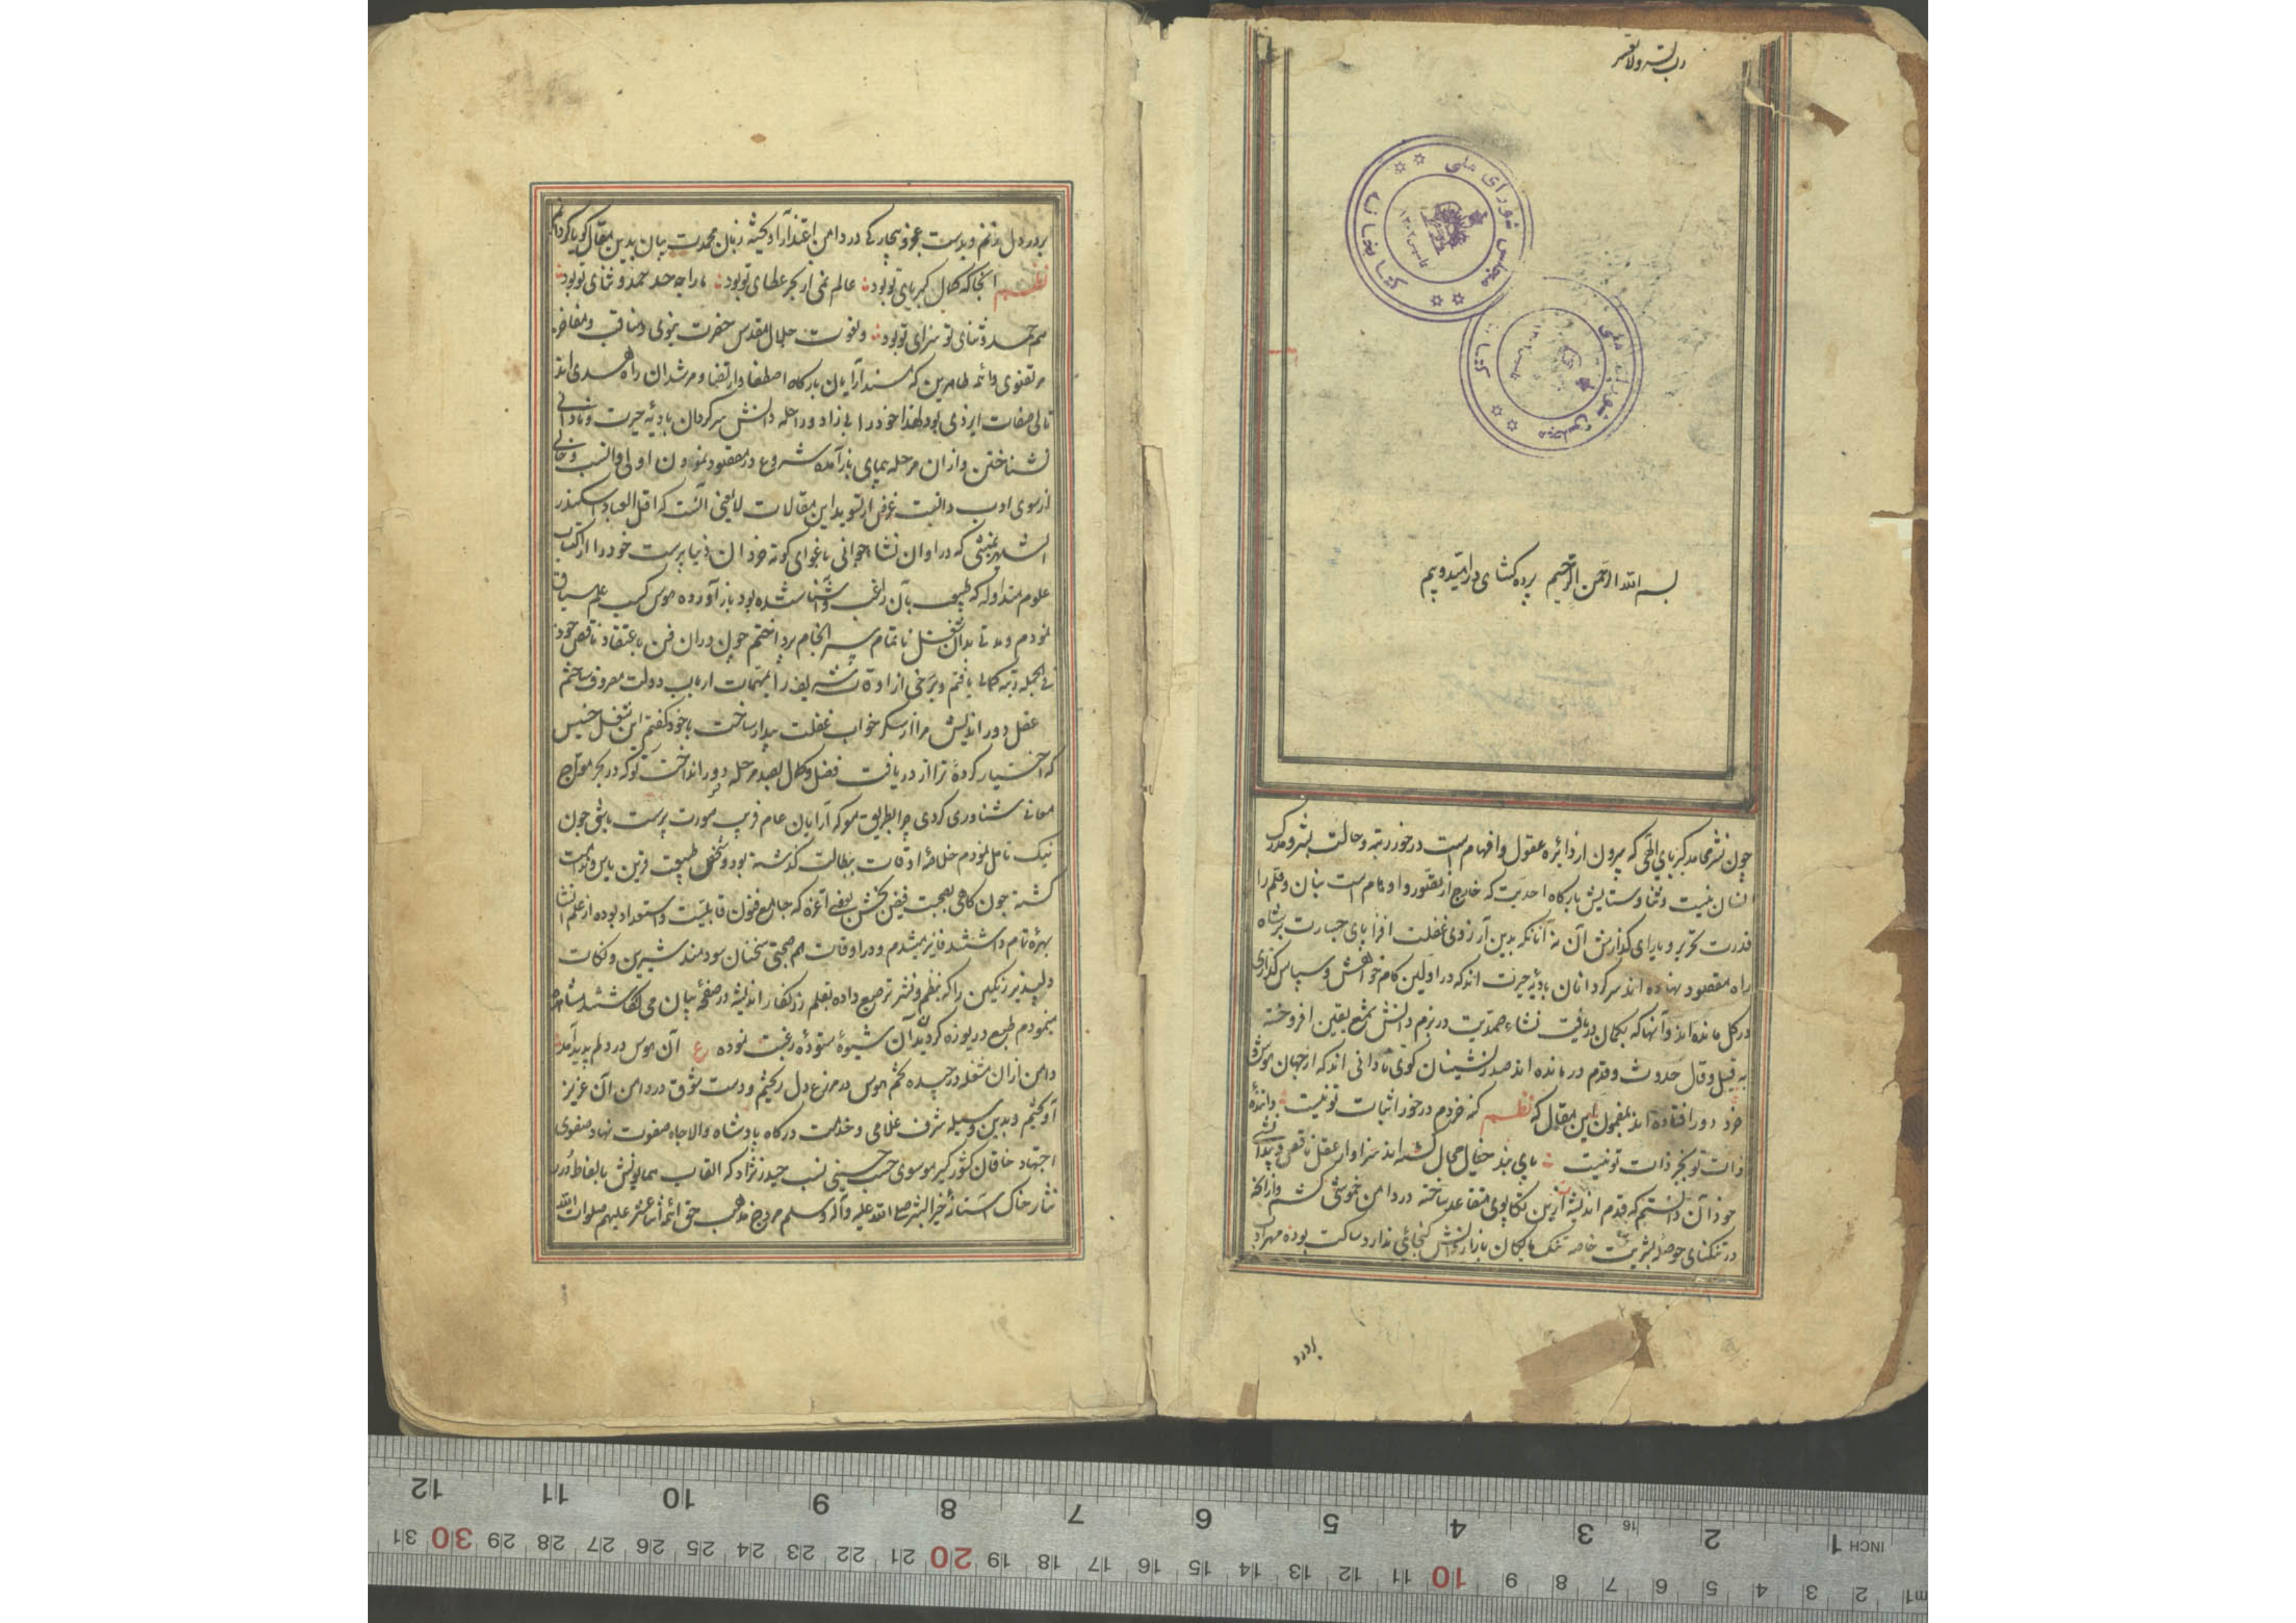 رب یسر ولا تعسر
کتابخانه مجلس شورای ملی
کتابخانه مجلس شورای ملی
بسم الله الرحمن الرحیم پرده کشای در امید و بیم
چون نشر محامد کبریای الهی که بیرون از دائره عقول و افهام است در خور رتبه و حالت بشر و مدرک
انسان نیست و ثنا و ستایش بارکاه احدیت که خارج از تصور و اوهام است بنان و قلم را
قدرت تحریر و یارای کذارش آن نه آنانکه بدین آرزوی غفلت افزا پای جسارت بر شاه
راه مقصود نهاده اند سرکردانان بادیه حیرت اندکه در اولین کام خواهش و سپاس کذاری
در کل مانده اند و آنها که بکمان دریافت نشاء صمدیت در بزم دانش شمع یقین افروخته
به قیل و قال حدوث و قدم در مانده اند صدرنشینان کوی نادانی اندکه از جهان هوش و
خرد دور افتاده اند بمضمون این مقال که نظم کنه خردم در خور اثبات تو نیست داننده
ذات تو بجز ذات تو نیست پای بند خیال محال کشته اند سزاوار عقل ناقص و بیدانشی
خود آن دانستم که قدم اندیشه ازین تکاپوی متقاعد ساخته در دامن خموشی کشم و از آنجا
در تنکنای حوصله بشریت خاصه تنک مایکان بازار دانش کنجائی ندارد ساکت بوده مهر ادب
بر در
بر در دل زنم و بدست عجز و بیچارکی در دامن اعتذار آویخته زبان محمدت بیان بدین مقال کویا کردانم
نظم آنجا که کمال کبریای تو بود عالم نمی از بحر عطای تو بود ما را چه حد حمد و ثنای تو بود
هم حمد و ثنای تو سزای تو بود و نعوت جلال مقدس حضرت نبوی و مناقب و مفاخر
مرتضوی و ائمه طاهرین که مسند آرایان بارکاه اصطفا و ارتضا و مرشدان راه هدی اند
تالی صفات ایزدی بود لهذا خود را بی زاد و راحله دانش سرکردان بادیه حیرت و نادانی
نشناختن و از ان مرحله پیمای باز آمده شروع در مقصود نمودن اولی و انسب و خالی
از سوی ادب دانست غرض از تسوید این مقالات لایعنی آنست که اقل العباد اسکندر
الشهیر بمنشی که در اوان نشاء جوانی باغوای کوته خردان دنیا پرست خود را از اکتساب
علوم متداوله که طبیعت بآن راغب و آشنا شده بود باز آورده هوس کسب علم سیاق
نمودم و مدتی بدان شغل ناتمام سر انجام پرداختم چون در ان فن باعتقاد ناقص خود
فی الجمله رتبه کمال یافتم و برخی از اوقات شریف را بمهمات ارباب دولت مصروف ساختم
عقل دور اندیش مرا از سکر خواب غفلت بیدار ساخت با خود کفتم این شغل خسیس
که اختیار کرده ترا از دریافت فضل و کمال بصد مرحله دور انداخت توکه در بحر مواج
معانی شناوری کردی چرا بطریق معرکه آرایان عام فریب صورت پرست باشی چون
نیک تامل نمودم خلاصه اوقات ببطالت کذشته بود و شخص طبیعت قرین یاس و ندامت
کشته چون کاهی بصحبت فیض بخش بعضی اعزه که جامع فنون قابلیت و استعداد بوده از علم انشا
بهره تام داشتند فایز میشدم و در اوقات هم صحبتی سخنان سودمند شیرین و نکات
دلپذیر رنکین را که بنظم و نثر ترصیع داده بقلم زرنکار اندیشه در صفحه بیان می نکاشتند مشاهده
مینمودم طبع دریوزه کر بدان شیوه ستوده رغبت نموده ع آن هوس در دلم پدید آمد
دامن از ان مشغله در چیده تخم هوس در مزرع دل ریختم و دست شوق در دامن آن عزیز
آویختم و بدین وسیله شرف غلامی و خدمت درکاه پادشاه والاجاه صفوت نهاد صفوی
اجتهاد خاقان کشور کیر موسوی حسب حسینی نسب حیدر نژاد که القاب همایونش بالفاظ درر
نثار خاک آستانه خیر البشر صلی الله علیه و آله و سلم مروج مذهب حق ائمه اثنا عشر علیهم صلوات الله